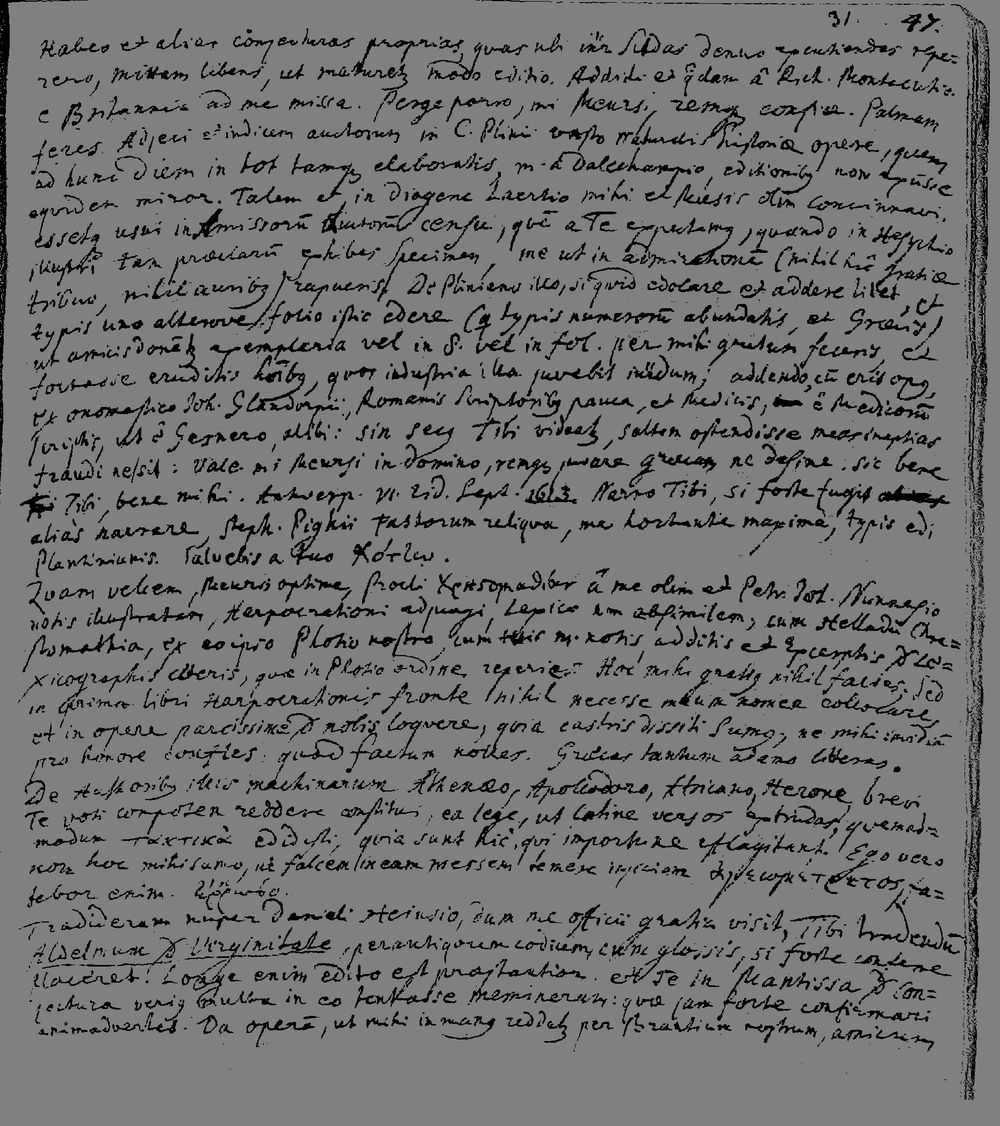 31. 47.
Habeo et alias conjecturas proprias, quas ubi inter Schdas denuo excutiendas repe=
rero, mittam libens, ut maturetq modo editio. Addidi et qdam â Rich. Montacutio
e Britannia ad me missa. Perge porro, mi Meursi, remq confice. Palmam
feres. Adjeci et indicem auctorum in C. Plinii vasto Naturalis historiæ opere, quem
ad hunc diem in tot tamq elaboratis, m. â Dalechampio, editionibq non extitisse
equidem miror. Talem et, in Diogene Laertio mihi et Musis olim concinnavi,
essetq usui in Amissorũ Autorũ censu, quẽ a Te expectamq, quando in Hesychio
illustri tam præclarũ exhibes specimen, me ut in admirationẽ (nihil hîc gratiæ
tribuo, nihil auribq) rapueris. De Pliniano illo, si quid edolare et addere libet, et
typis uno alterove folio istic edere (q typis numerorũ abundatis, et Græcis)
ut amicis donetq exemplaria vel in 8. vel in fol. per mihi gratum feceris, et
fortasse eruditis hoĩbq, quos industria illa juvabit; addendo, cũ eris opq,
ex onomastico Joh. Glandorpii, Romanis Scriptoribq pauca, et Medicis, ê Medicorũ
scriptis, ut ê Gesnero, alibi: sin secq Tibi videatq, saltem ostendisse meas ineptias
fraudi ne sit: Vale mi Meursi in Domino, remq juvare græcam ne desine: sic bene
Tibi, bene mihi. Antwerp. VI. Eid. Sept. 1613. Narro Tibi, si forte fugit
aliàs narrare, Steph. Pighii Fastorum reliqua, me hortante maxime, typis edi
Plantinianis. Salvebis a tuo
Quam vellem, Meursi optime, Procli Χρηστομαθίαν â me olim et Petr. Joh. Nunnesio
notis illustratam, Harpocrationi adjungi, Lexico non absimilem; cum Helladii Chre=
stomathia, ex eo ipso Photio nostro, cum m. notis, additis et Excerptis d Le=
xicographis cæteris, quæ in Photio ordine reperies. Hoc mihi gratiq nihil facies; Sed
in prima libri Harpocrationis fronte nihil necesse meum nomen collocare,
et in opere parcissime d nobis loquere, quia castris dissiti sumq; ne mihi invidiã
pro honore confles: quod factum nolles. Græcas tantum adamo litteras.
De Authoribq illis machinarum Athenæo, Apollodoro, Africano, Herone, brevi
Te voti compotem reddere constitui, ea lege, ut Latine versos extrudas, quemad=
modum Τακτικὰ edidisti, quia sunt hîc, qui importune efflagitant. Ego vero
non hoc mihi sumo, ne falcem in eam messem temere injiciam ἀγεωμέτρητος, fa=
tebor enim. Ἔρρωσο.
Tradideram nuper Danieli Heinsio, dum me officii gratia visit, Tibi tradendũ
Aldelmum d Virginitate, perantiquum codicem, cum glossis, si forte conferre
placeret. Longe enim edito est præstantior. et Te in Mantissa d con=
jectura veriq multa in eo tentasse memineram: quæ jam forte confirmari
animadvertes. Da operã, ut mihi in manq reddatq per Brantium nostrum, amicum